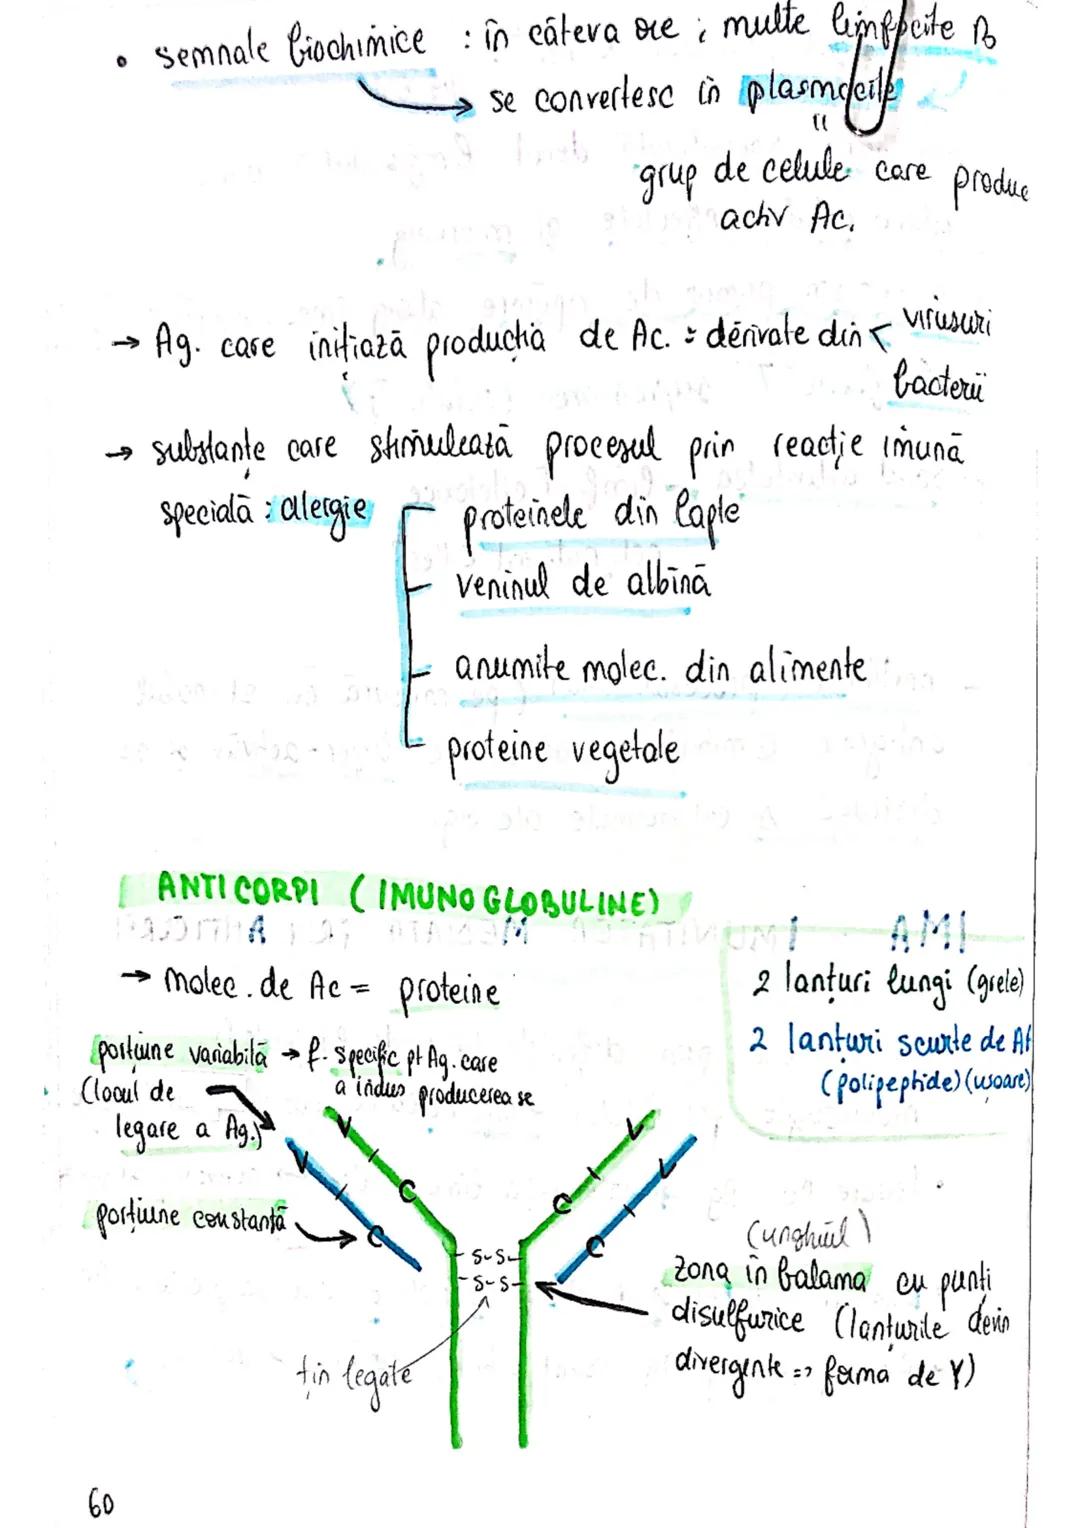 • semnale biochimice : în câteva ore ; multe limfocite B
→ se convertesc în plasmocite
"
grup de celule care produc
activ Ac.
→ Ag. care inițiază producția de Ac. : derivate din < virusuri
bacterii
→ substanțe care stimulează procesul prin reacție imună
specială : alergie
proteinele din lapte
veninul de albină
anumite molec. din alimente
proteine vegetale
ANTICORPI (IMUNOGLOBULINE)
A M I AMI
→ molec. de Ac = proteine
2 lanțuri lungi (grele)
2 lanțuri scurte de
(polipeptide) (ușoare)
porțiune variabilă → f. specific pt Ag. care
a indus producerea se
(locul de
legare a Ag.)
porțiune constantă
V C V C
V C V C
-S-S-
-S-S-
țin legate
(unghiul)
zona în balama cu punți
disulfurice (lanțurile devin
divergente => forma de Y)
60